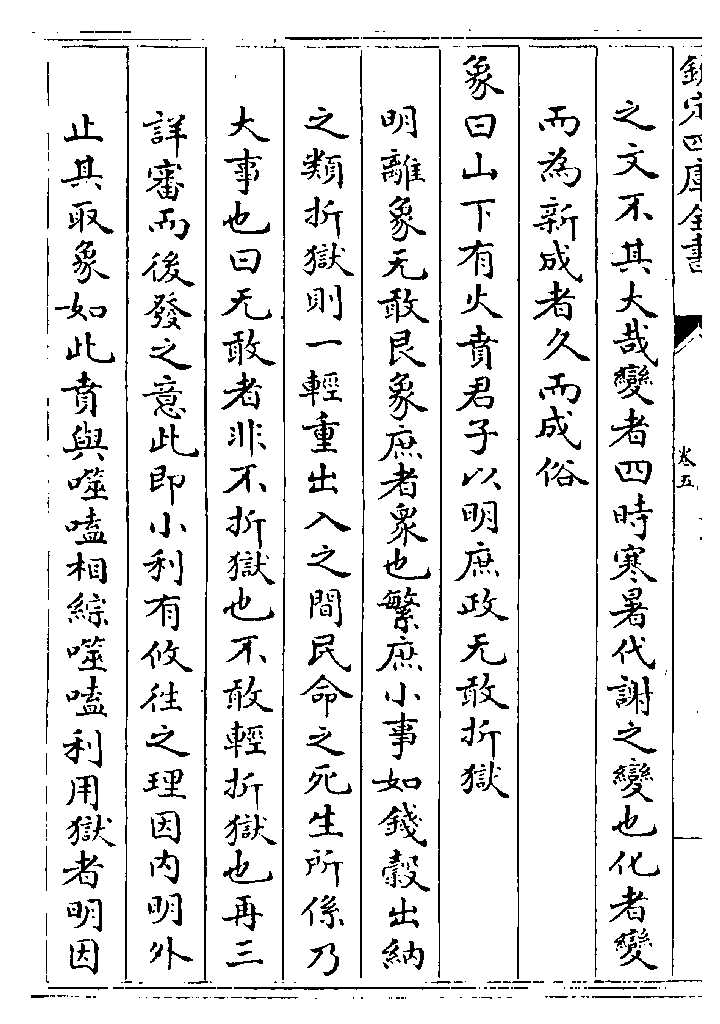 欽定四庫全書
卷五
之文不其大哉變者四時寒暑代謝之變也化者變
而為新成者久而成俗
象曰山下有火賁君子以明庶政无敢折獄
明離象无敢艮象庶者衆也繁庶小事如錢穀出納
之類折獄則一輕重出入之間民命之死生所係乃
大事也曰无敢者非不折獄也不敢輕折獄也再三
詳審而後發之意此即小利有攸徃之理因内明外
止其取象如此賁與噬嗑相綜噬嗑利用獄者明因